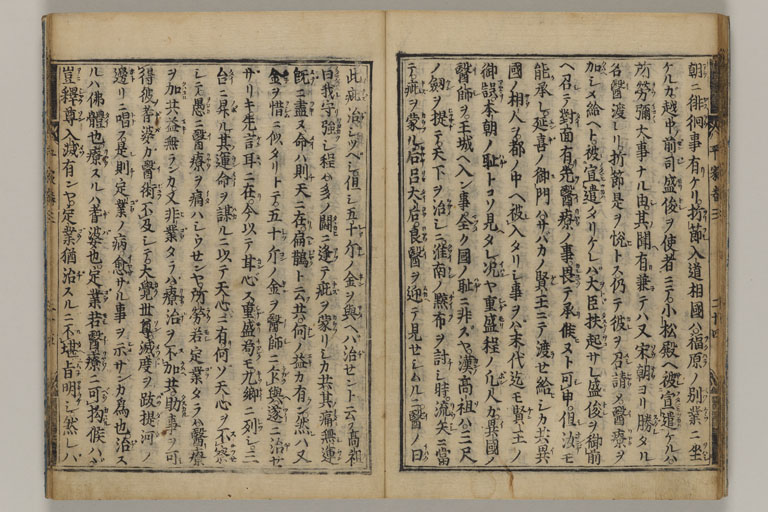 朝ニ徘徊事有ケリ折節入道相國ハ福原ノ別業ニ坐
ケルカ越中前司盛俊ヲ使者ニテ小松殿ヘ被宣遣ケルハ
所勞彌大事ナル由其聞有兼テハ又宋朝ヨリ勝タル
名醫渡レリ折節是ヲ悦トス仍テ彼ヲ召請メ醫療ヲ
加シメ給ヘト被宣遣タリケレハ大臣扶起サレ盛俊ヲ御前
ヘ召テ對面有先醫療ノ事畏テ承候ヌト可申但汝モ
能承レ延喜ノ御門ハサハカノ賢王ニテ渡セ給シカ共異
國ノ相人ヲ都ノ中ヘ被入タリシ事ヲハ末代迄モ賢王ノ
御誤本朝ノ恥トコソ見タレ况ヤ重盛程ノ凡人カ異國ノ
醫師ヲ王城ヘ入ン事全ク國ノ恥ニ非スヤ漢高祖ハ三尺
ノ劔ヲ提テ天下ヲ治シニ淮南ノ黥布ヲ討シ時流矢ニ當
テ疵ヲ蒙ル后呂太后良醫ヲ迎テ見セシムルニ醫ノ曰
此疵治シツヘシ但シ五十斤ノ金ヲ與ヘハ治セント云フ高祖
曰我守強シ程ハ多ノ鬪ニ逢テ疵ヲ蒙リシカ共其痛無運
旣ニ盡ヌ命ハ則天ニ在扁鵲ト云共何ノ益カ有ン然ハ又
金ヲ惜ニ似タリトテ五十斤ノ金ヲ醫師ニ乍與遂ニ治セ
サリキ先言耳ニ在今以テ甘心ス重盛苟モ九卿ニ列シ三
台ニ昇ル其運命ヲ謀ルニ以テ天心ニ有何ソ天心ヲ不察
シテ愚ニ醫療ヲ痛ハシウセンヤ所勞若定業タラハ醫療
ヲ加共益無ランカ又非業タラハ療治ヲ不加共助事ヲ可
得彼耆婆カ醫術不及シテ大覺世尊滅度ヲ跋提河ノ
邊リニ唱ス是則定業ノ病愈サル事ヲ示サンカ爲也治ス
ルハ佛體也療スルハ耆婆也定業若醫療ニ可拘候ハヽ
豈釋尊入滅有ンヤ定業猶治スルニ不堪旨明シ然レハ